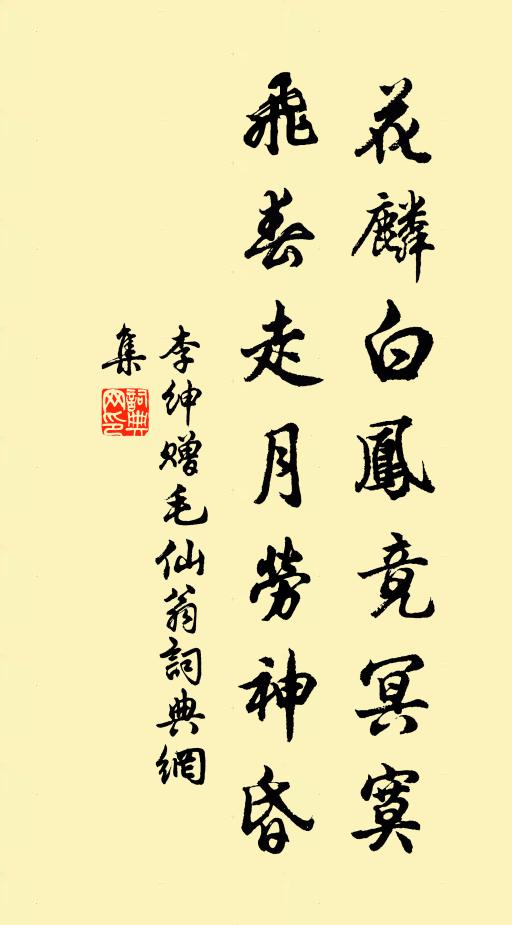 花麟白鳳竟冥寞
飛春走月勞神昏
李绅赠毛仙翁詞典網
集
詞典
网印